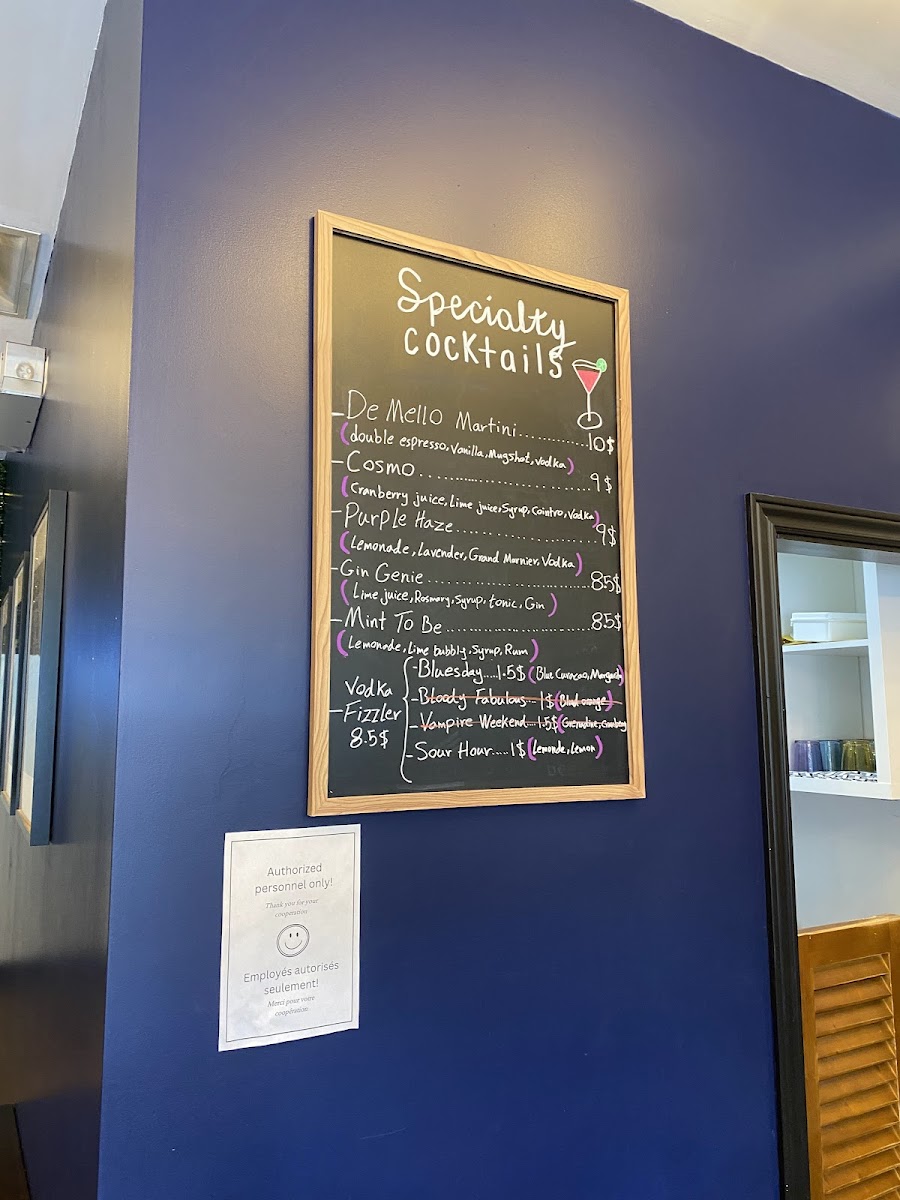 Specialty
cocktails
-De Mello Martini..............10$
(double espresso, Vanilla, Mugshot, Vodka)
-Cosmo..............................9$
(Cranberry juice, Lime juice, Syrup, Cointro, Vodka)
-Purple Haze........................9$
(Lemonade, Lavender, Grand Marnier, Vodka)
-Gin Genie..............................8.5$
(Lime juice, Rosmary, Syrup, tonic, Gin)
-Mint To Be..............................8.5$
(Lemonade, Lime bubbly, Syrup, Rum)
-Vodka Fizzler 8.5$
-Bluesday....1.5$ (Blue Curacao, Margarita)
-Bloody Fabulous...1$ (Blood orange)
-Vampire Weekend...1.5$ (Grenadine, Cranberry)
-Sour Hour.....1$ (Lemonde, Lemon)
Authorized
personnel only!
Thank you for your
cooperation
Employés autorisés
seulement!
Merci pour votre
coopération